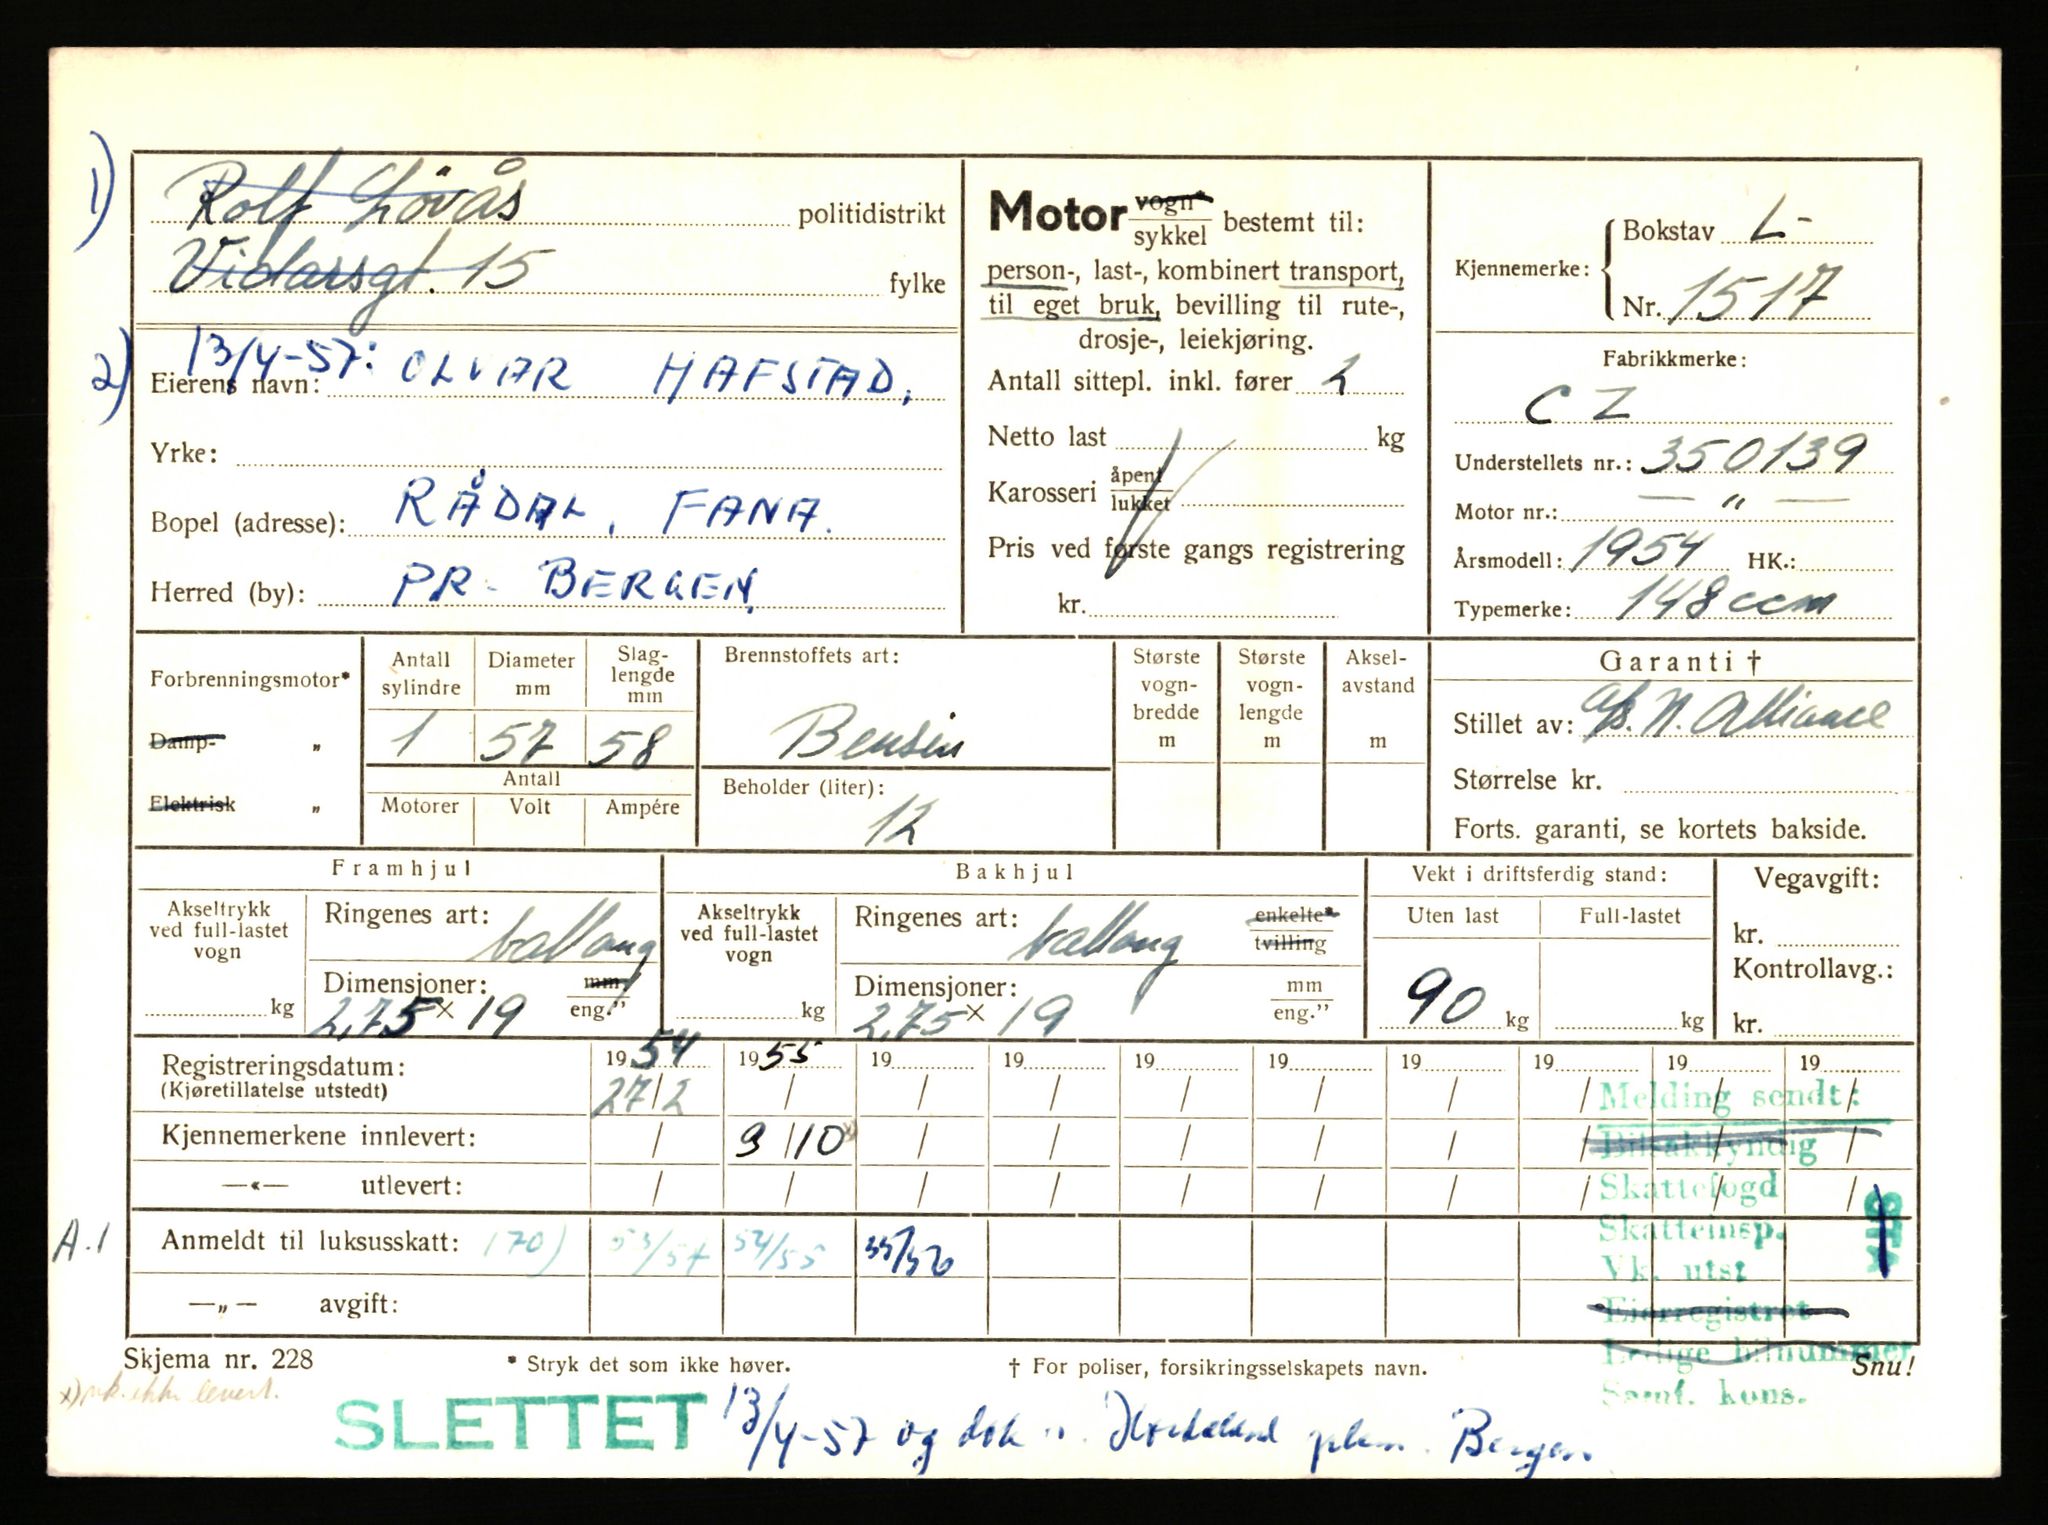 1) Rolf Lövås politidistrikt
Vidarsgt. 15 fylke
2) 13/4-57: OLVAR HAFSTAD,
Eierens navn:
Yrke:
Bopel (adresse): RÅDAL, FANA.
Herred (by): PR. BERGEN.
Motor vogn*/sykkel bestemt til:
person-, last-, kombinert transport,
til eget bruk, bevilling til rute-,
drosje-, leiekjøring.
Antall sittepl. inkl. fører 2
Netto last kg
Karosseri åpent/lukket
Pris ved første gangs registrering
kr.
Kjennemerke: Bokstav L-
Nr. 1517
Fabrikkmerke:
CZ
Understellets nr.: 350139
Motor nr.: — „ —
Årsmodell: 1954 HK.:
Typemerke: 148 ccm
Forbrenningsmotor*
Damp- „
Elektrisk „
Antall sylindre
Diameter mm
Slag-
lengde
mm
1 57 58
Antall
Motorer Volt Ampére
Brennstoffets art:
Bensin
Beholder (liter):
12
Største
vogn-
bredde
m
Største
vogn-
lengde
m
Aksel-
avstand
m
Garanti †
Stillet av: A/S. N. Alliance
Størrelse kr.
Forts. garanti, se kortets bakside.
Framhjul
Akseltrykk
ved full-lastet
vogn
kg
Ringenes art: ballong
Dimensjoner: mm/eng.”
2,75 x 19
Bakhjul
Akseltrykk
ved full-lastet
vogn
kg
Ringenes art: ballong enkelte*/tvilling
Dimensjoner: mm/eng.”
2,75 x 19
Vekt i driftsferdig stand:
Uten last Full-lastet
90 kg kg
Vegavgift:
kr.
Kontrollavg.:
kr.
Registreringsdatum: 1954 1955 19 19 19 19 19 19 19 19
(Kjøretillatelse utstedt) 27/2 / / / / / / / / /
Kjennemerkene innlevert: / 3/10 x) / / / / / / / /
—«— utlevert: / / / / / / / / / /
A.1 Anmeldt til luksusskatt: 170) 53/54 54/55 55/56
—„— avgift:
Melding sendt:
Bilsakkyndig
Skattefogd
Skatteinsp.
Vk. utst
Eierregistret
Ledige bilnummer
Saml. kons.
Skjema nr. 228 * Stryk det som ikke høver. † For poliser, forsikringsselskapets navn. Snu!
x) vk. ikke levert.
SLETTET 13/4-57 og dok Hordaland Bergen.